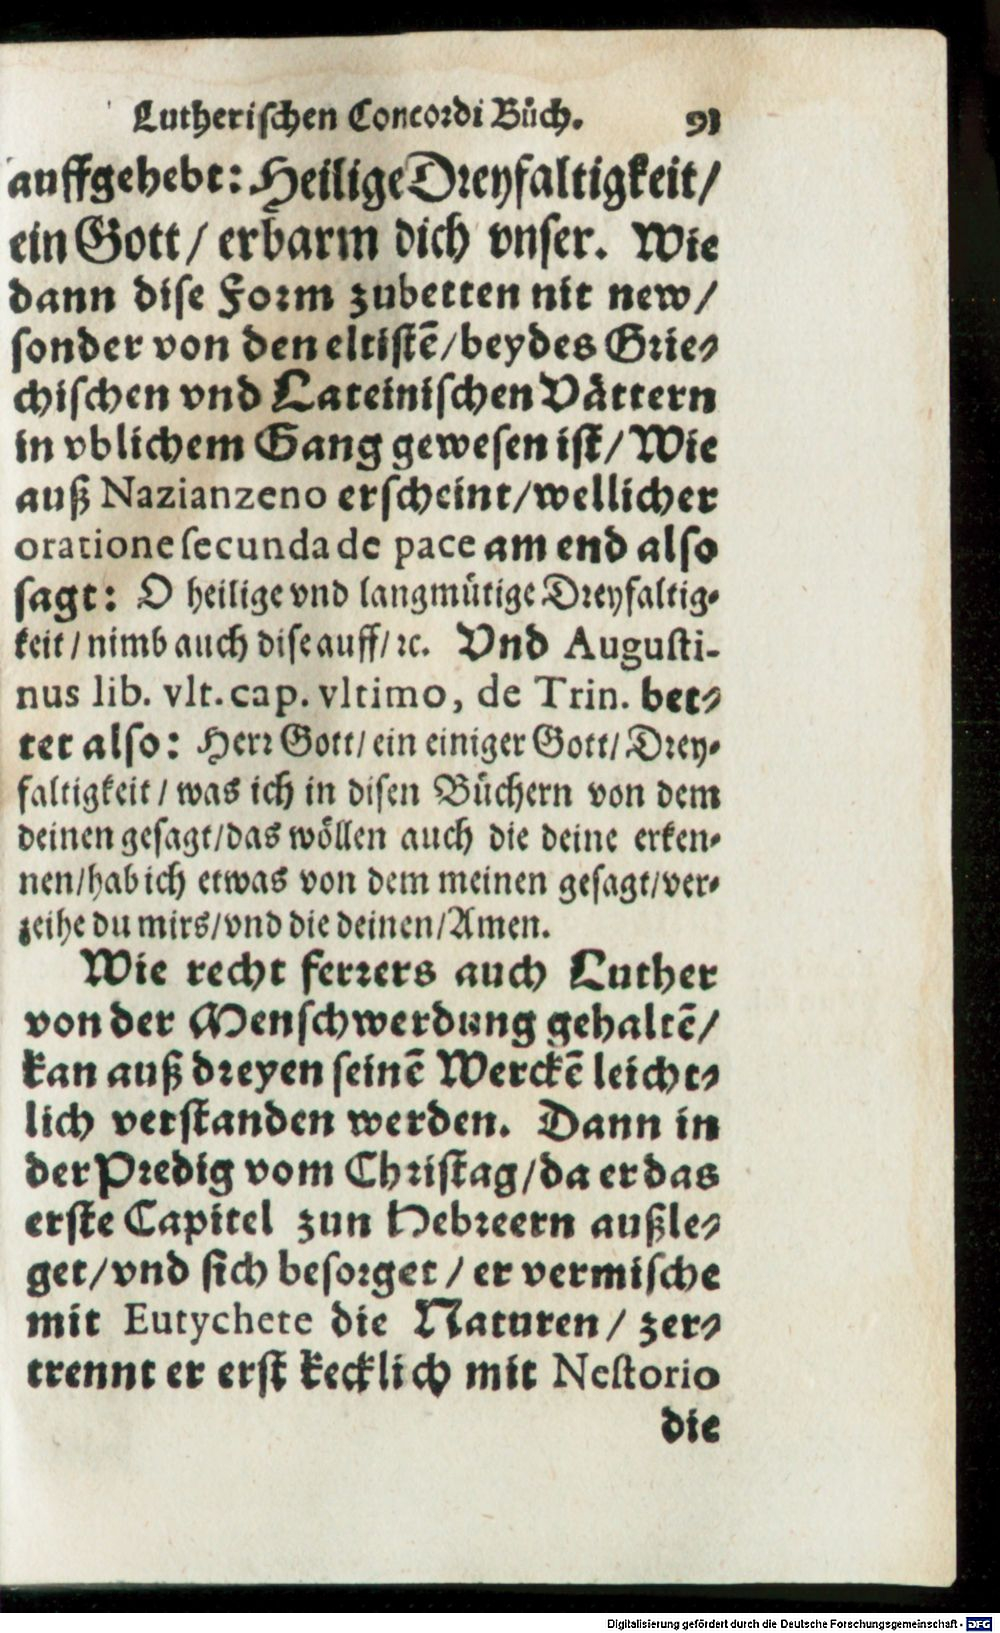 Lutherischen Concordi Buͤch. 91
auffgehebt: Heilige Dreyfaltigkeit/
ein Gott/ erbarm dich vnser. Wie
dann dise Form zubetten nit new/
sonder von den eltistē/beydes Grie⸗
chischen vnd Lateinischen Vaͤttern
in vblichem Gang gewesen ist/ Wie
auß Nazianzeno erscheint/wellicher
oratione secunda de pace am end also
sagt: O heilige vnd langmuͤtige Dreyfaltig⸗
keit/nimb auch dise auff/ꝛc. Vnd Augusti-
nus lib. vlt. cap. vltimo, de Trin. bet⸗
tet also: Herr Gott/ein einiger Gott/Drey⸗
faltigkeit/was ich in disen Buͤchern von dem
deinen gesagt/das woͤllen auch die deine erken⸗
nen/hab ich etwas von dem meinen gesagt/ver⸗
zeihe du mirs/vnd die deinen/Amen.
Wie recht ferrers auch Luther
von der Menschwerdung gehaltē/
kan auß dreyen seinē Werckē leicht⸗
lich verstanden werden. Dann in
der Predig vom Christag/da er das
erste Capitel zun Hebreern außle⸗
get/vnd sich besorget/er vermische
mit Eutychete die Naturen/ zer⸗
trennt er erst kecklich mit Nestorio
die
Digitalisierung gefördert durch die Deutsche Forschungsgemeinschaft - DFG